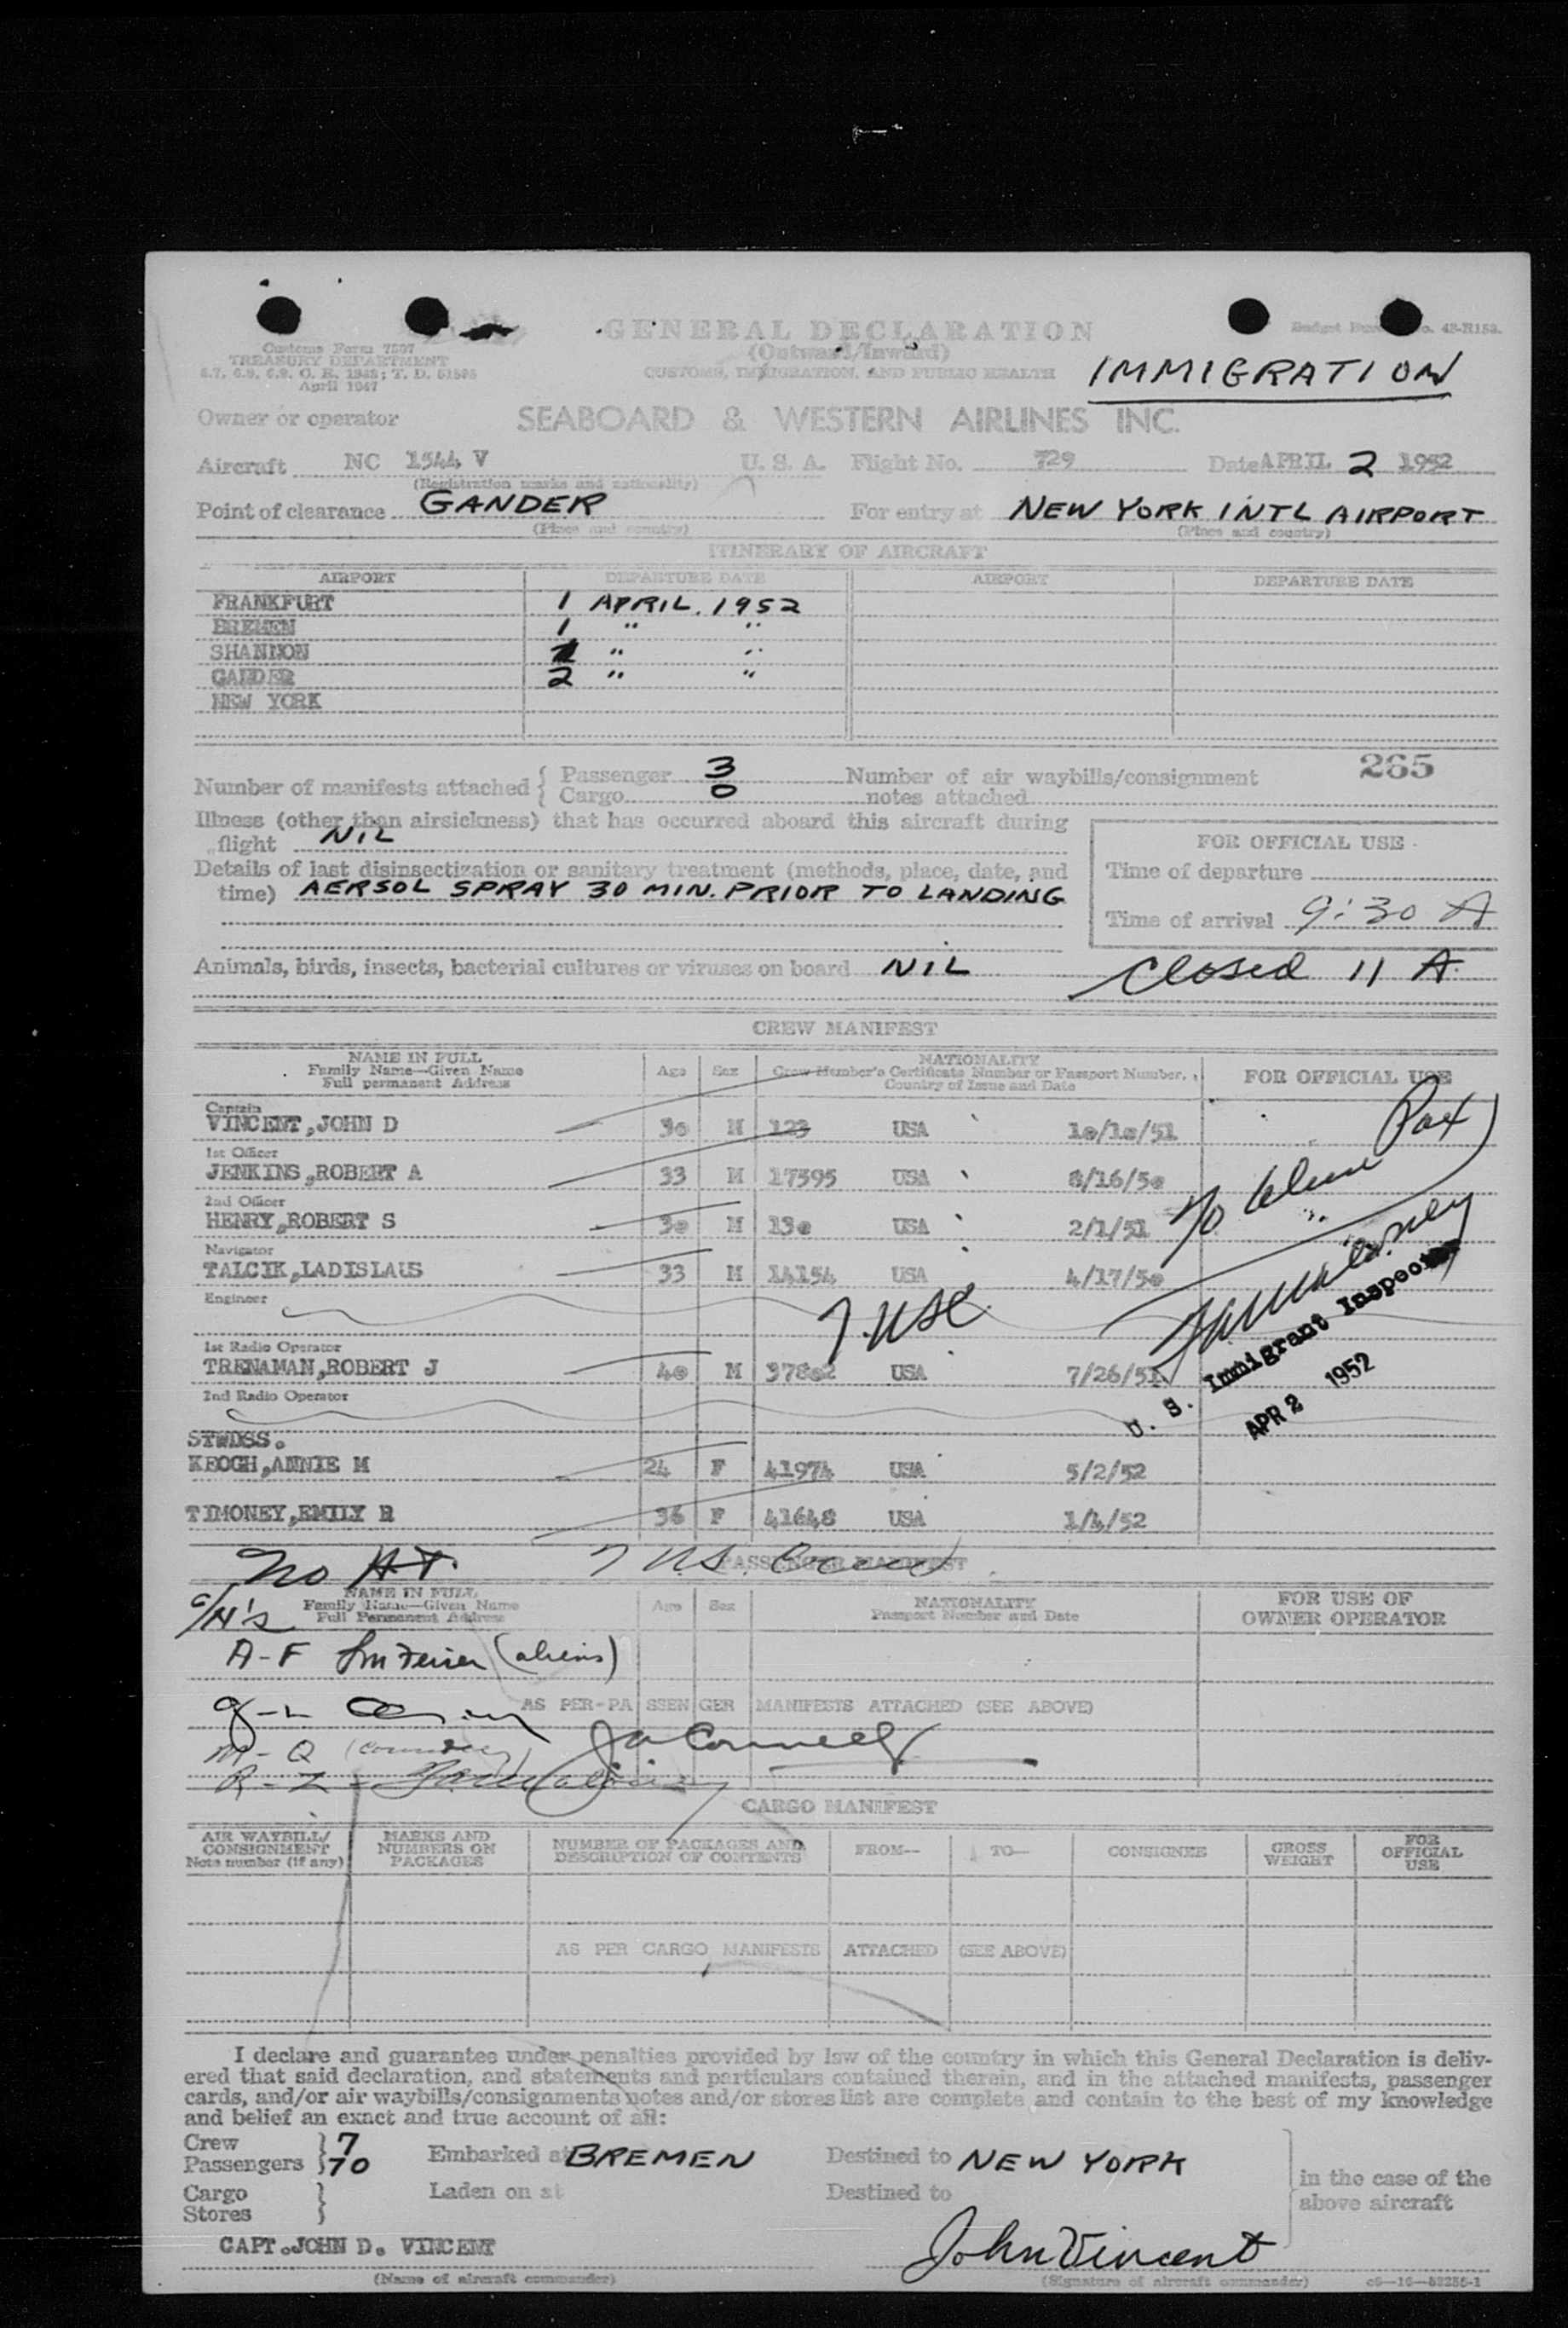 GENERAL DECLARATION
(Outward/Inward)
CUSTOMS, IMMIGRATION, AND PUBLIC HEALTH
Customs Form 7507
TREASURY DEPARTMENT
April 1947
IMMIGRATION
Owner or operator SEABOARD & WESTERN AIRLINES INC.
Aircraft NC 1544 V U. S. A. Flight No. 729 Date APRIL 2 1952
(Registration marks and nationality)
Point of clearance GANDER For entry at NEW YORK INTL AIRPORT
(Place and country) (Place and country)
ITINERARY OF AIRCRAFT
AIRPORT DEPARTURE DATE AIRPORT DEPARTURE DATE
FRANKFURT 1 APRIL. 1952
BREMEN 1 " "
SHANNON " "
GANDER 2 " "
NEW YORK
265
Number of manifests attached { Passenger 3 Number of air waybills/consignment
Cargo 0 notes attached
Illness (other than airsickness) that has occurred aboard this aircraft during
flight NIL
FOR OFFICIAL USE
Details of last disinsectization or sanitary treatment (methods, place, date, and
time) AERSOL SPRAY 30 MIN. PRIOR TO LANDING
Time of departure
Time of arrival 9:30 A
Animals, birds, insects, bacterial cultures or viruses on board NIL
Closed 11 A.
CREW MANIFEST
NAME IN FULL
Family Name—Given Name
Full permanent Address
Age Sex NATIONALITY
Crew Member's Certificate Number or Passport Number,
Country of Issue and Date
FOR OFFICIAL USE
Captain
VINCENT,JOHN D 3o M 123 USA 1o/1o/51
1st Officer
JENKINS,ROBERT A 33 M 17595 USA 8/16/5o
2nd Officer
HENRY,ROBERT S 3o M 13o USA 2/1/51
Navigator
TALCIK,LADISLAUS 33 M 14154 USA 4/17/5o
Engineer
7. USC
1st Radio Operator
TRENAMAN,ROBERT J 4o M 378o2 USA 7/26/51
2nd Radio Operator
U. S. Immigrant Inspector
APR 2 1952
STWDSS.
KEOGH,ANNIE M 24 F 41974 USA 5/2/52
TIMONEY,EMILY R 36 F 41648 USA 1/4/52
PASSENGER MANIFEST
No
NAME IN FULL
Family Name—Given Name
Full Permanent Address
Age Sex NATIONALITY
Passport Number and Date
FOR USE OF
OWNER OPERATOR
A-F (aliens)
AS PER PASSENGER MANIFESTS ATTACHED (SEE ABOVE)
M-Q
R-Z
CARGO MANIFEST
AIR WAYBILL/
CONSIGNMENT
Note number (if any)
MARKS AND
NUMBERS ON
PACKAGES
NUMBER OF PACKAGES AND
DESCRIPTION OF CONTENTS
FROM— TO— CONSIGNEE
GROSS
WEIGHT
FOR
OFFICIAL
USE
AS PER CARGO MANIFESTS ATTACHED (SEE ABOVE)
I declare and guarantee under penalties provided by law of the country in which this General Declaration is deliv-
ered that said declaration, and statements and particulars contained therein, and in the attached manifests, passenger
cards, and/or air waybills/consignments notes and/or stores list are complete and contain to the best of my knowledge
and belief an exact and true account of all:
Crew } 7
Passengers } 70 Embarked at BREMEN Destined to NEW YORK
Cargo } Laden on at Destined to
Stores }
in the case of the
above aircraft
CAPT.JOHN D. VINCENT John Vincent
(Name of aircraft commander) (Signature of aircraft commander)